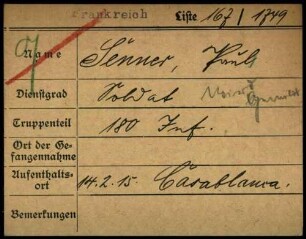 Frankreich Liste 167 / 1749
Name Senner, Paul
Dienstgrad Soldat
Truppenteil 180 Inf.
Ort der Gefangennahme
Aufenthaltsort 14.2.15. Casablanca.
Bemerkungen